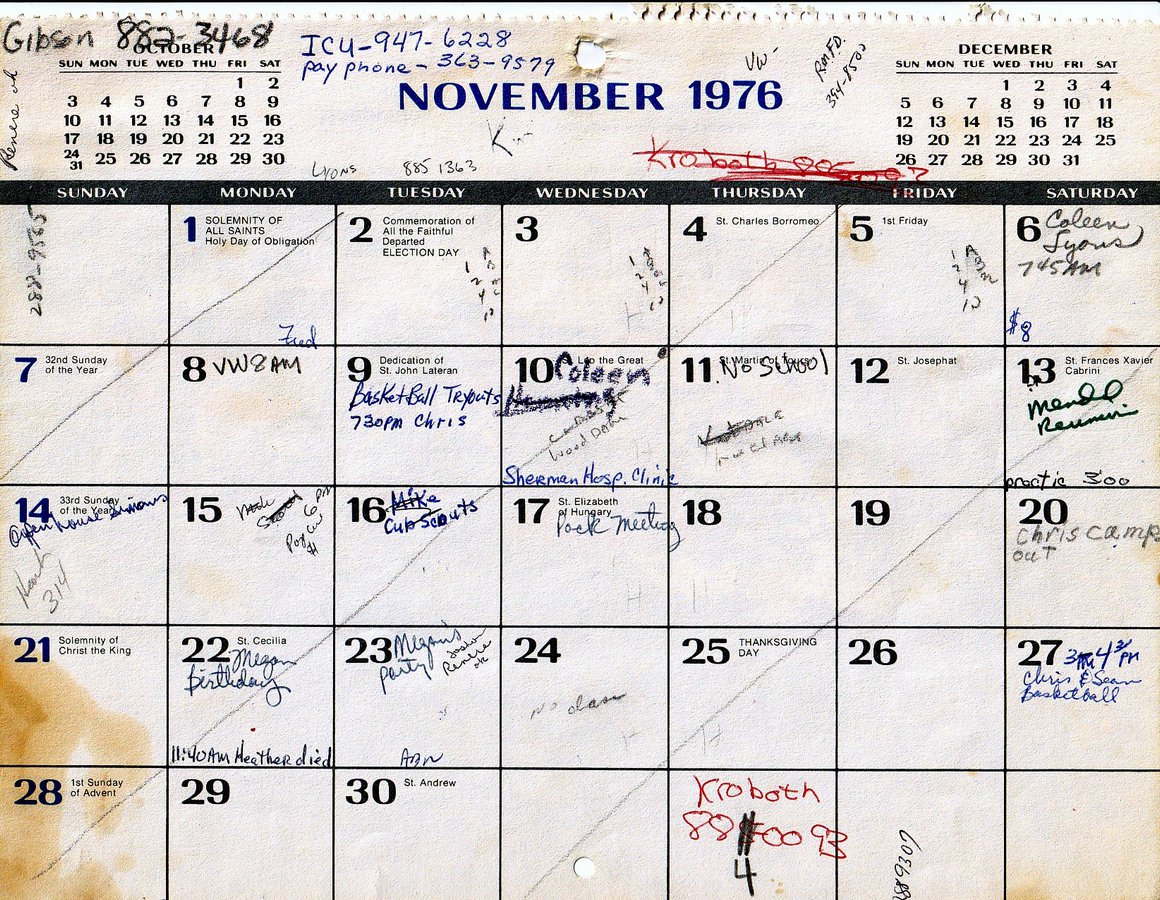 Gibson 882-3468
ICU-947-6228
pay phone - 363-9579
VW-
RMFD.
394-8500
Renere ok
OCTOBER
SUN MON TUE WED THU FRI SAT
1 2
3 4 5 6 7 8 9
10 11 12 13 14 15 16
17 18 19 20 21 22 23
24 25 26 27 28 29 30
31
NOVEMBER 1976
DECEMBER
SUN MON TUE WED THU FRI SAT
1 2 3 4
5 6 7 8 9 10 11
12 13 14 15 16 17 18
19 20 21 22 23 24 25
26 27 28 29 30 31
Lyons 885 1363
Kroboth
SUNDAY MONDAY TUESDAY WEDNESDAY THURSDAY FRIDAY SATURDAY
288-9565
1 SOLEMNITY OF
ALL SAINTS
Holy Day of Obligation
Fred
2 Commemoration of
All the Faithful
Departed
ELECTION DAY
3
4 St. Charles Borromeo
5 1st Friday
6 Coleen
Lyons
745AM
$8
7 32nd Sunday
of the Year
8 VW 8 AM
9 Dedication of
St. John Lateran
BasketBall Tryouts
730PM Chris
10 St. Leo the Great
Coleen
Sherman Hosp. Clinic
11 St. Martin of Tours
No School
12 St. Josephat
13 St. Frances Xavier
Cabrini
Mendel
Reunion
practic 3:00
14 33rd Sunday
of the Year
Open house Simons
314
15
6 PM
16 Mike
Cub Scouts
17 St. Elizabeth
of Hungary
Pack Meeting
18
19
20
Chris camp
out
21 Solemnity of
Christ the King
22 St. Cecilia
Megan
Birthday
11:40AM Heather died
23 Megan's
party
Renere
ok
24
No class
25 THANKSGIVING
DAY
26
27
Chris & Sean
Basketball
28 1st Sunday
of Advent
29
30 St. Andrew
Kroboth
4
8889307